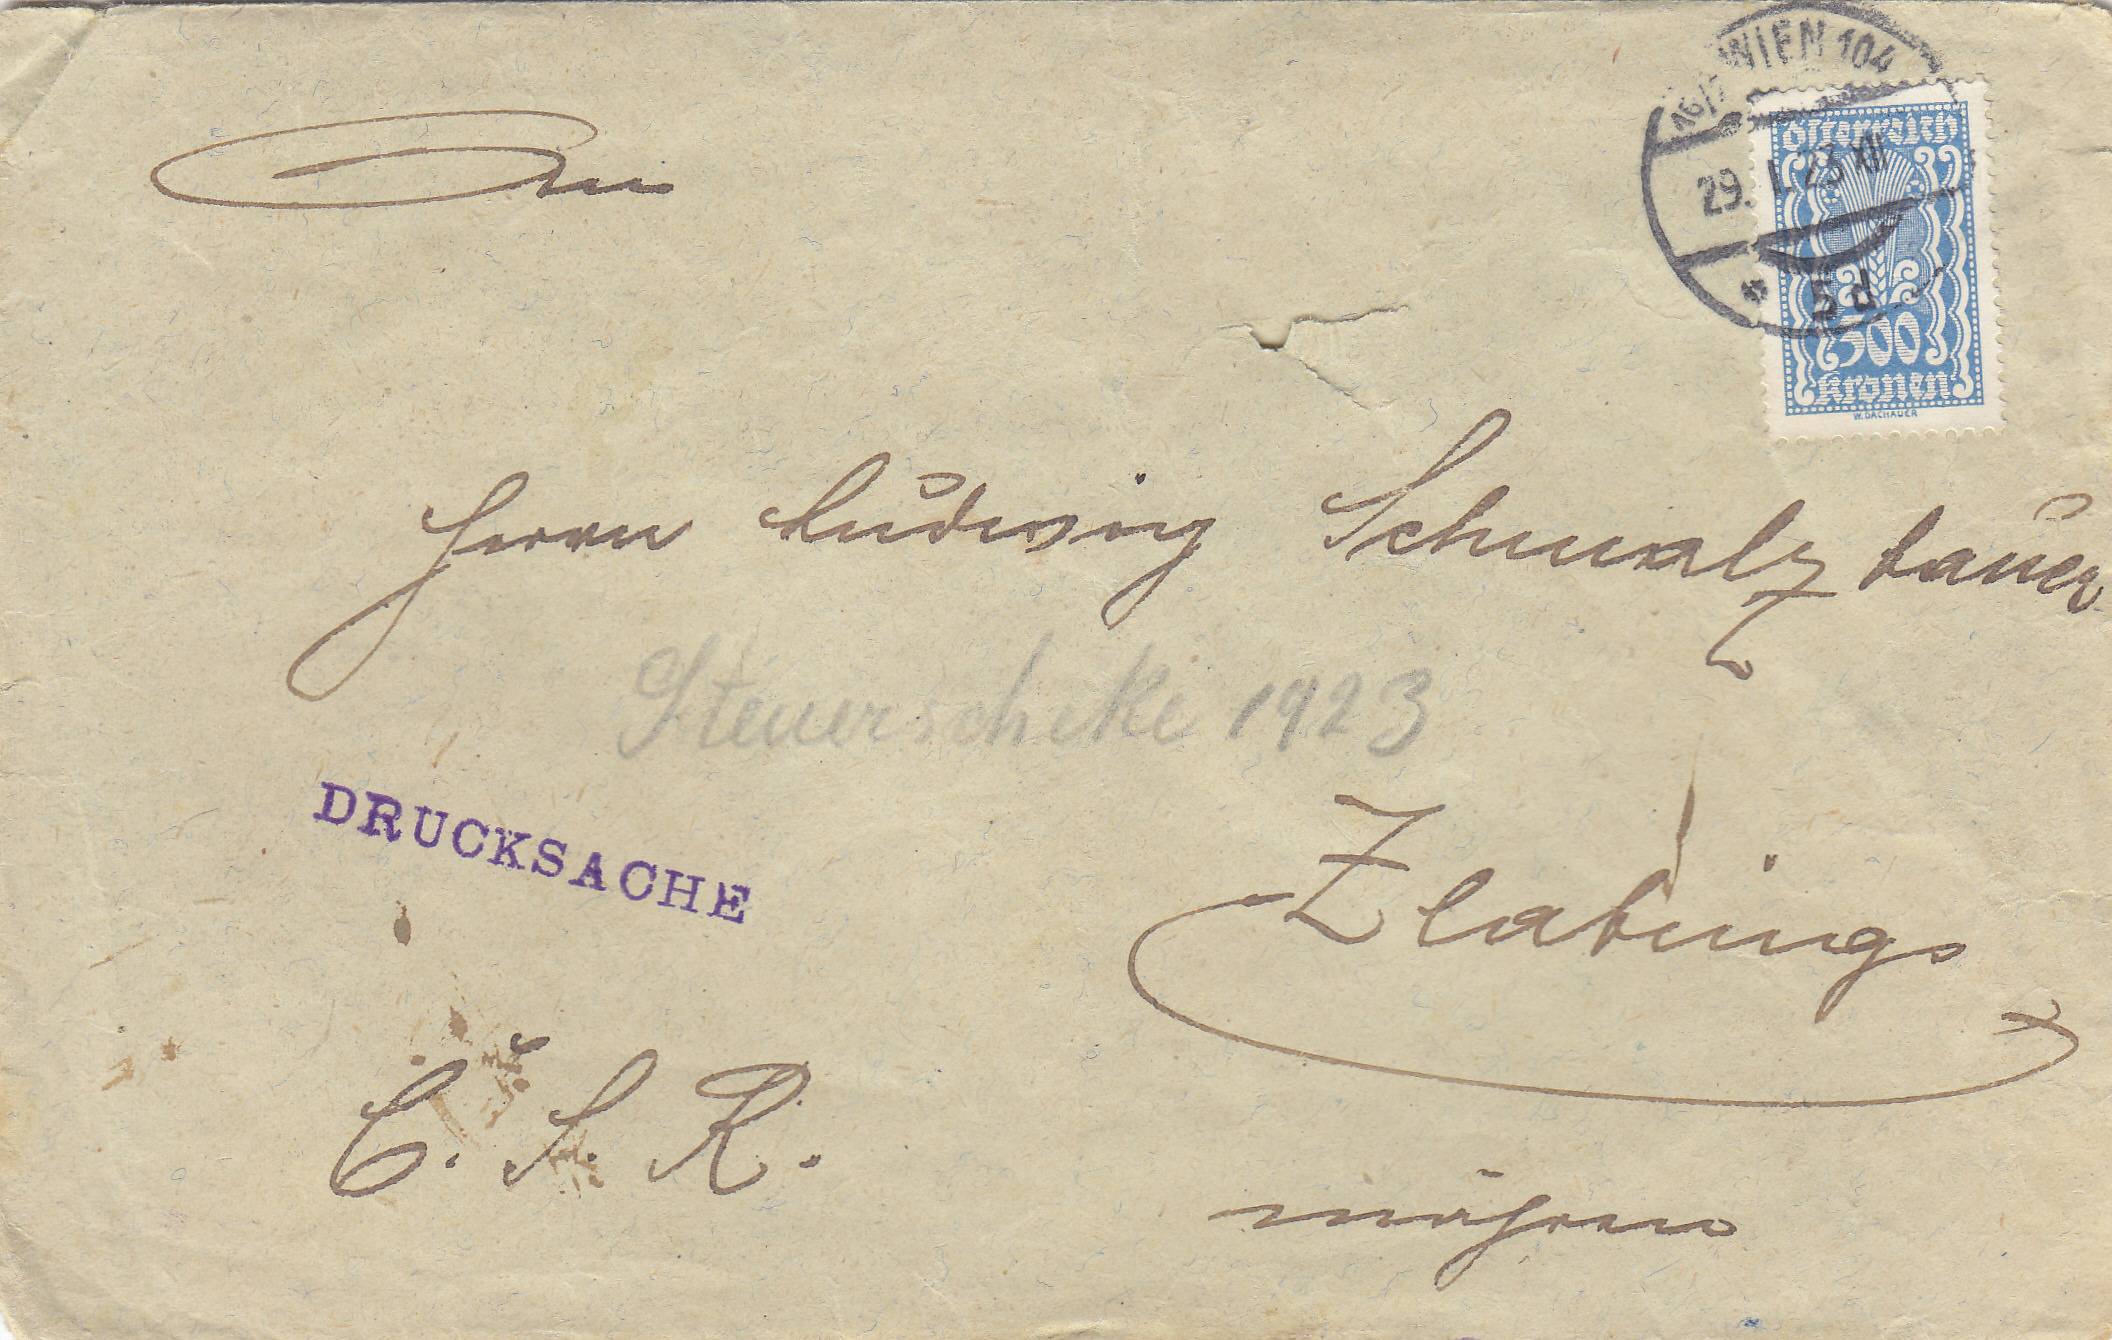 An
Herrn Ludwig Schmalzbauer
Steuerscheke 1923
DRUCKSACHE
Zlabings
Č. S. R.
Mähren
WIEN 104
29. I. 23 XII
* 5d
Österreich
300
Kronen
W. DACHAUER